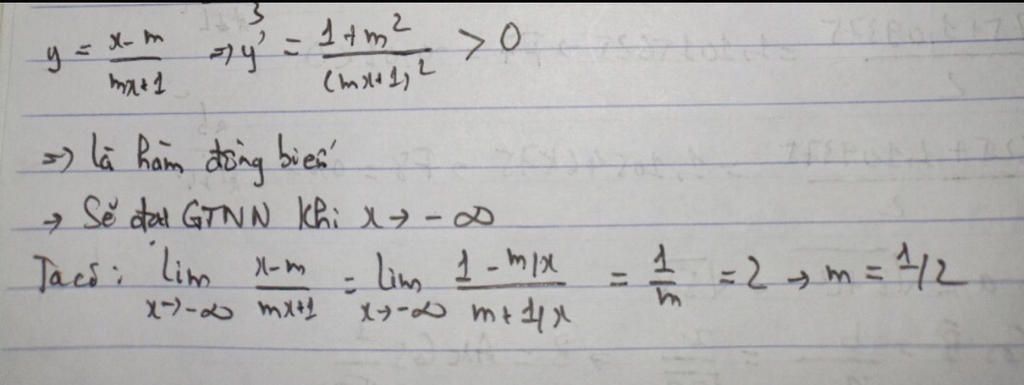 y = x-m / mx+1 => y' = 1+m² / (mx+1)² > 0
=> là hàm đồng biến
→ Sẽ đạt GTNN khi x → -∞
Ta có: lim x→-∞ x-m / mx+1 = lim x→-∞ 1 - m/x / m + 1/x = 1/m = 2 → m = 1/2